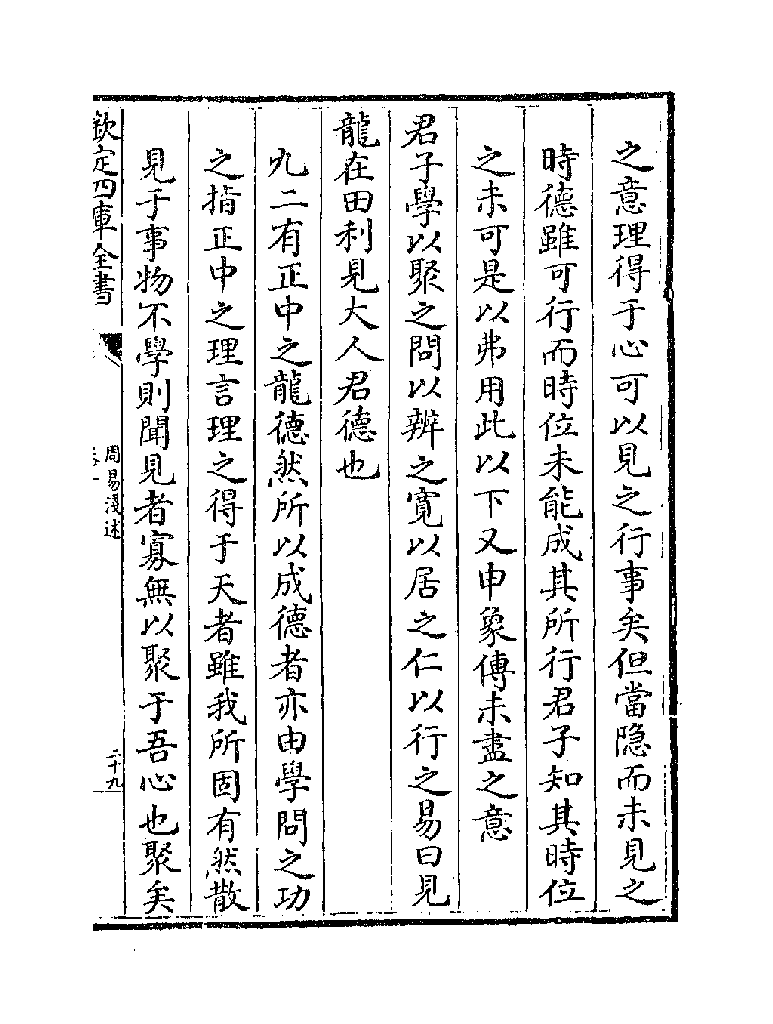 之意理得于心可以見之行事矣但當隐而未見之
時德雖可行而時位未能成其所行君子知其時位
之未可是以弗用此以下又申象傳未盡之意
君子學以聚之問以辨之寬以居之仁以行之易曰見
龍在田利見大人君德也
九二有正中之龍德然所以成德者亦由學問之功
之指正中之理言理之得于天者雖我所固有然散
見于事物不學則聞見者寡無以聚于吾心也聚矣
欽定四庫全書
周易淺述
卷一
二十九